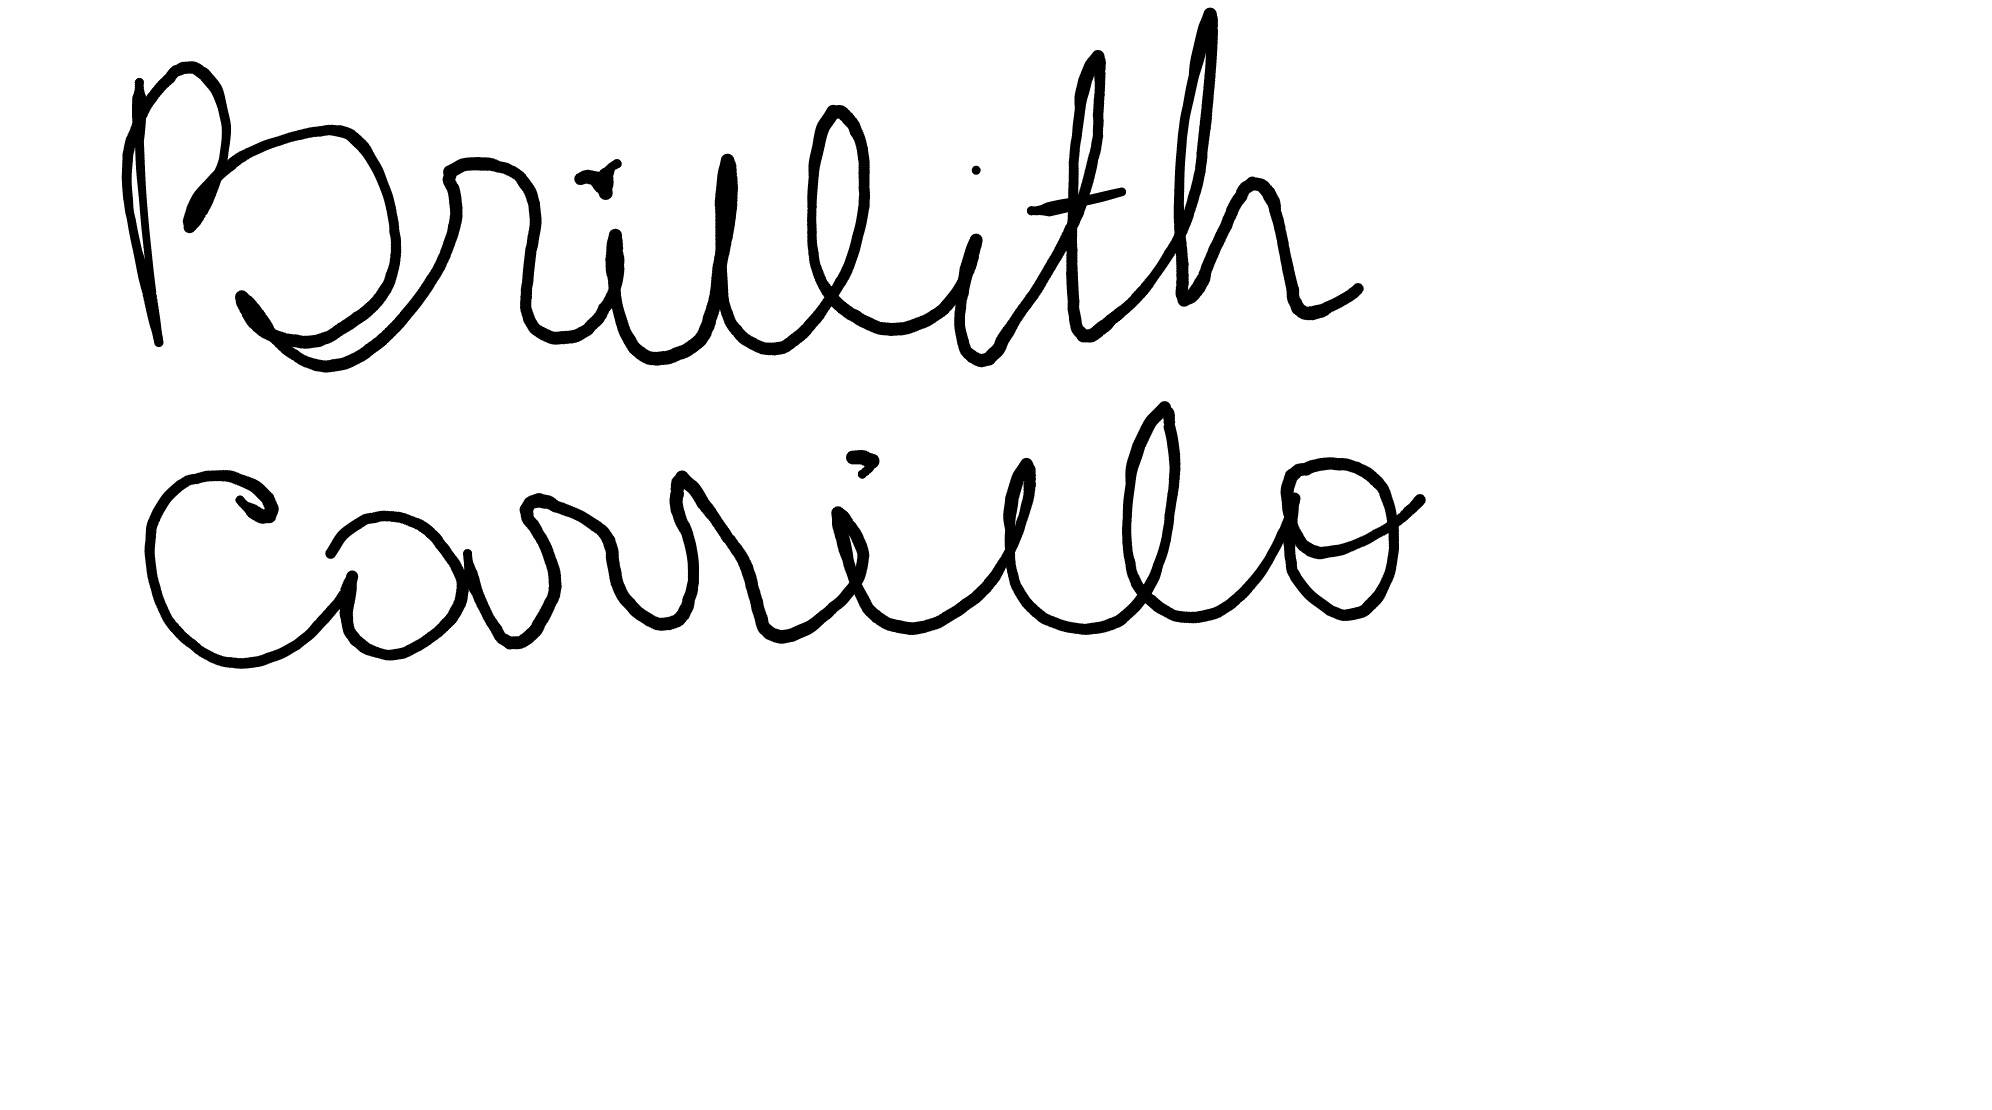 Brillith
Carrillo